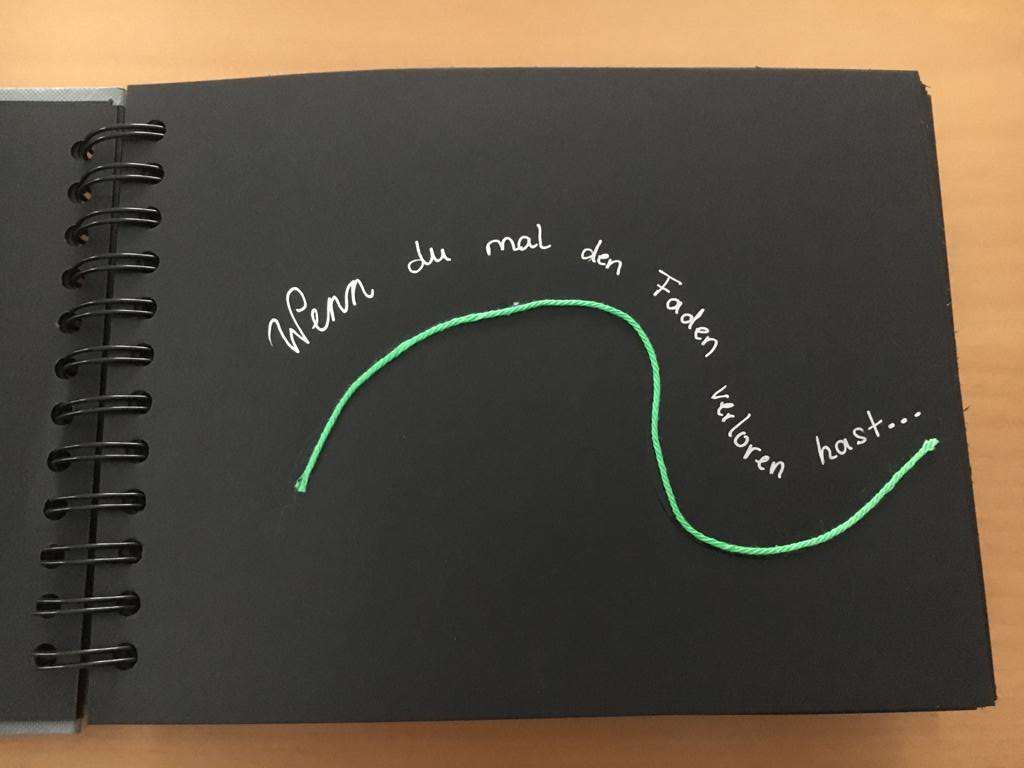 Wenn du mal den Faden verloren hast...